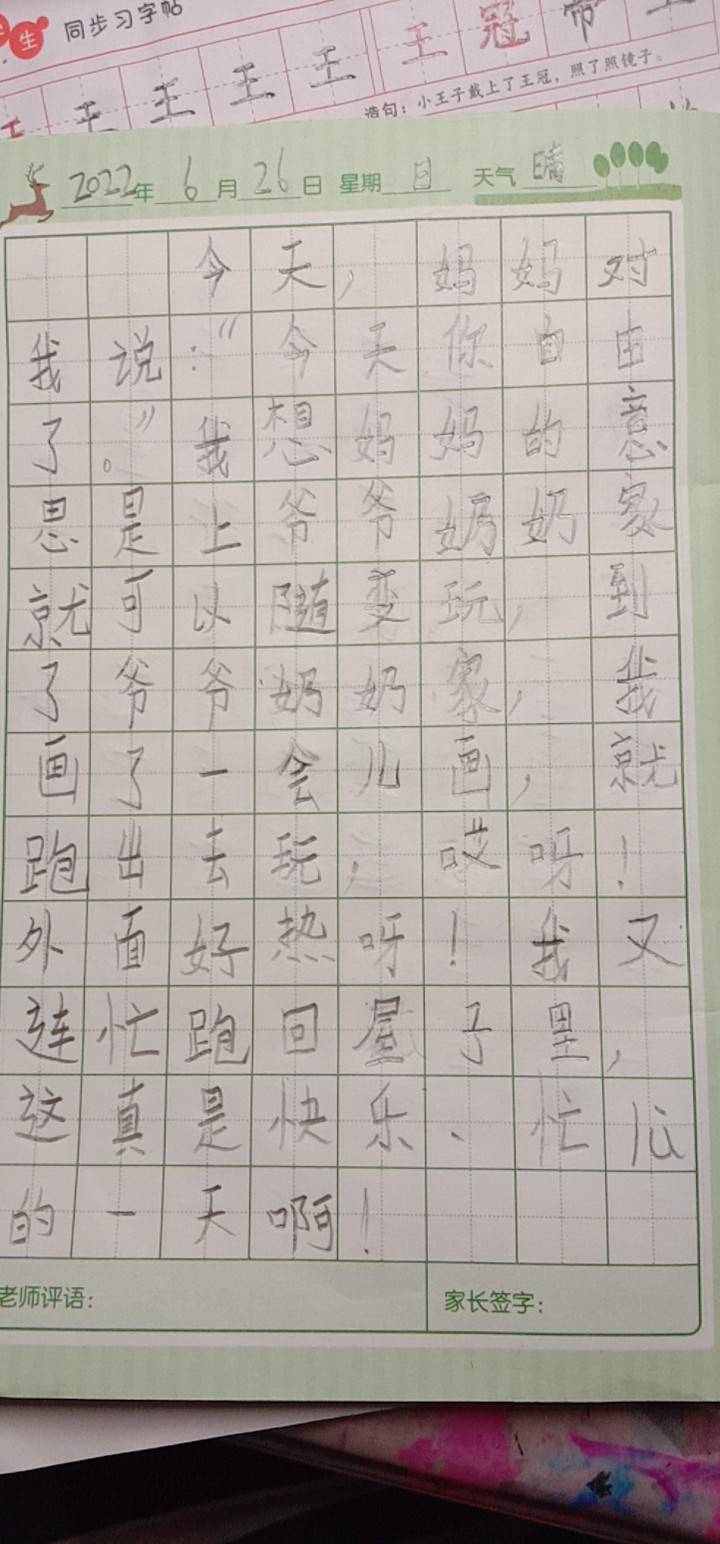 生 同步习字帖
王 王 王 王 王 王 冠
造句：小王子戴上了王冠，照了照镜子。
2022年 6月26日 星期 日 天气 晴
今天，妈妈对
我说：“今天你自由
了。”我想妈妈的意
思是上爷爷奶奶家
就可以随变玩，到
了爷爷奶奶家，我
画了一会儿画，就
跑出去玩，哎呀！
外面好热呀！我又
连忙跑回屋子里，
这真是快乐、忙心
的一天啊！
老师评语： 家长签字：